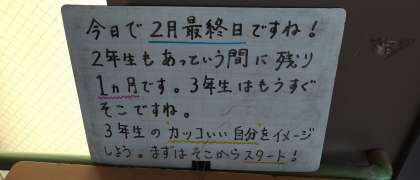 今日で2月最終日ですね!
2年生もあっという間に残り
1ヵ月です。3年生はもうすぐ
そこですね。
3年生のカッコいい自分をイメージ
しよう。まずはそこからスタート!